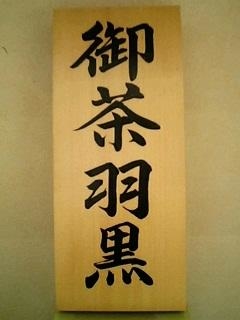 御茶羽黒